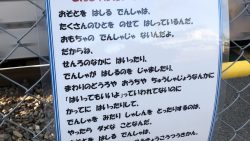 おそとを はしる でんしゃは、
たくさんのひとを のせて はしっているんだ。
おもちゃの でんしゃじゃ ないんだよ。
だからね、
せんろのなかに はいったり、
でんしゃが はしるのを じゃましたり、
まわりのどうろや おうちや ちゅうしゃじょうなんかに
「はいってもいいよ」っていわれてないのに
かってに はいったりして、
でんしゃを みたり しゃしんを とったりするのは、
やったら ダメな ことなんだ。
おそとを はしる でんしゃは、